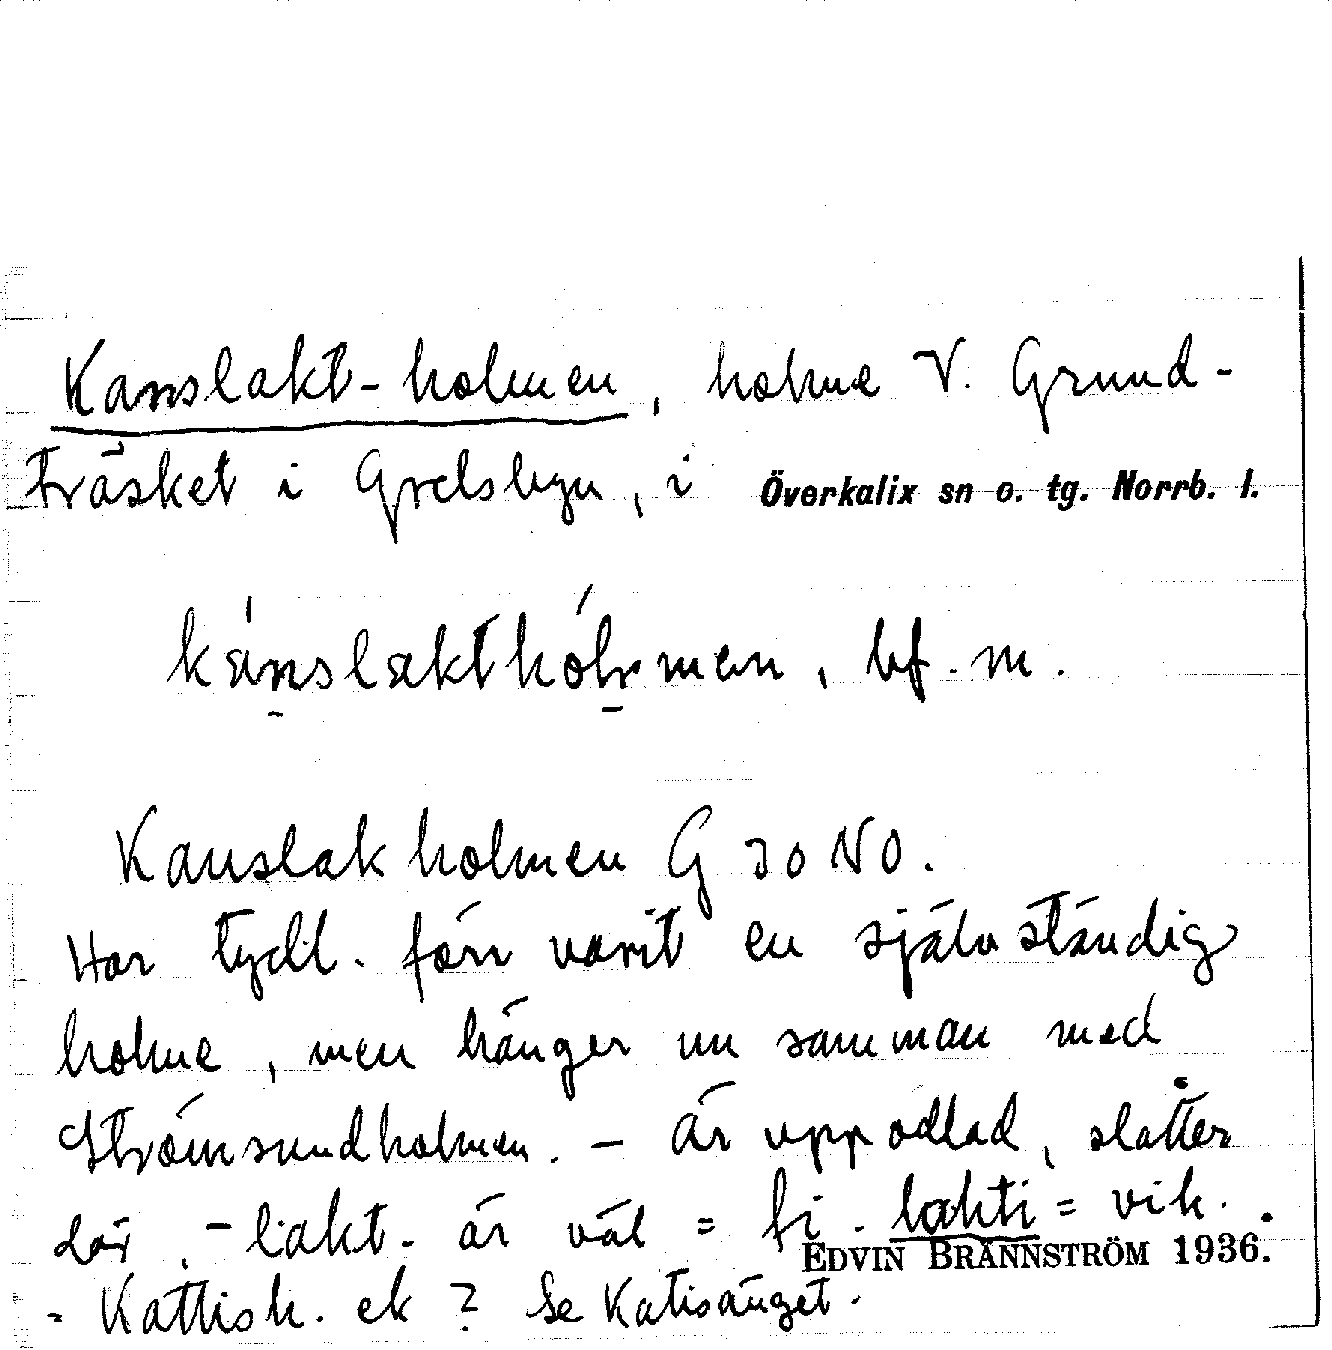 Kanslakt-holmen, holme V. Grund-
träsket i Grelsbyn, i Överkalix sn o. tg. Norrb. l.
kánslakthólmen, bf. m.
Kanslakholmen G 30 NO.
Har tydl. förr varit en självständig
holme, men hänger nu samman med
Strömsundholmen. – Är uppodlad, slåtter
där. -lakt- är väl = fi. lahti = vik.
EDVIN BRÄNNSTRÖM 1936.
= Kattish. ek? Se Katisänget.